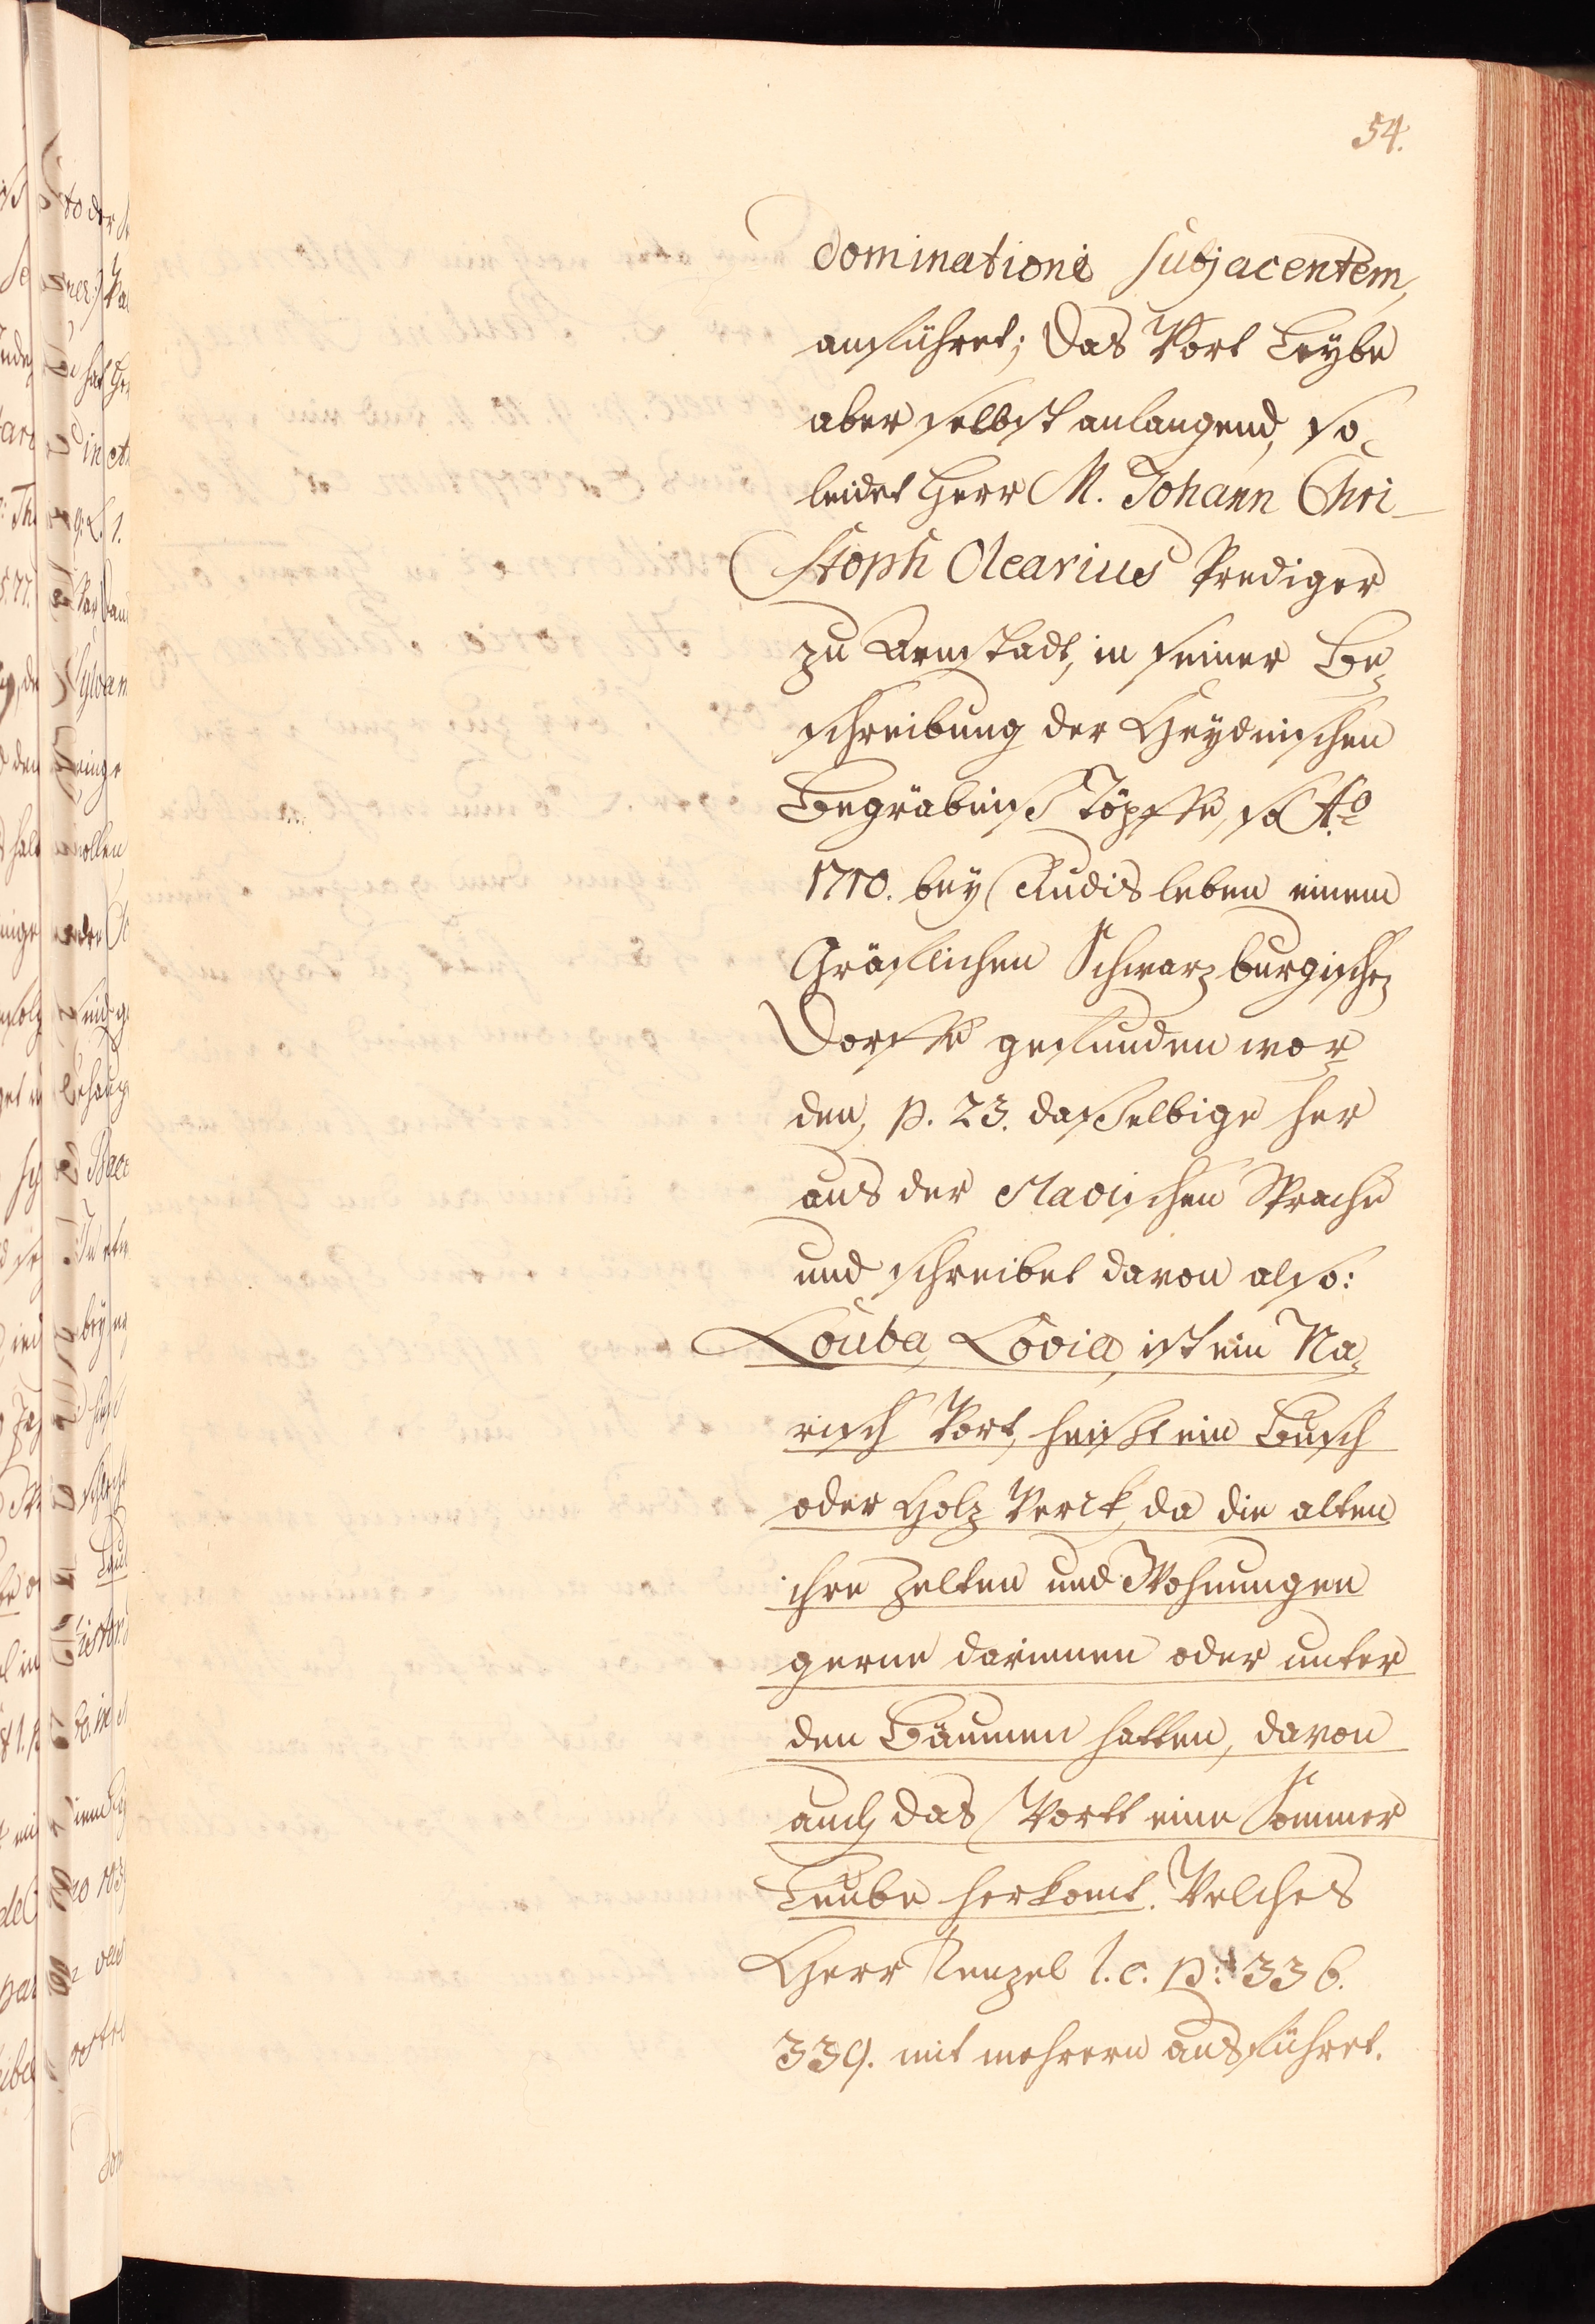 54.
dominationi subjacentem,
anführet; Das Wort Leybe
aber selbst anlangend, so
leidet Herr M. Johann Chri-
stoph Olearius Prediger
zu Arnstadt, in seiner Be-
schreibung der Heydnischen
Begräbniß Töpffe, so Ao.
1710. bey Rudisleben einem
Gräflichen Schwarzburgischen
Dorffe gefunden wor-
den, p. 23. dasselbige her
aus der slavischen Sprache
und schreibet davon also:
Louba, Lovia, ist ein Na-
risch Wort, heißt ein Busch
oder Holz Werck, da die alten
ihre Zelten und Wohnungen
gerne darinnen oder unter
den Bäumen hatten, davon
auch das Wortt eine Sommer
Leube herkomt. Welches
Herr Tenzel l. c. p. 336.
339. mit mehrern ausführet.